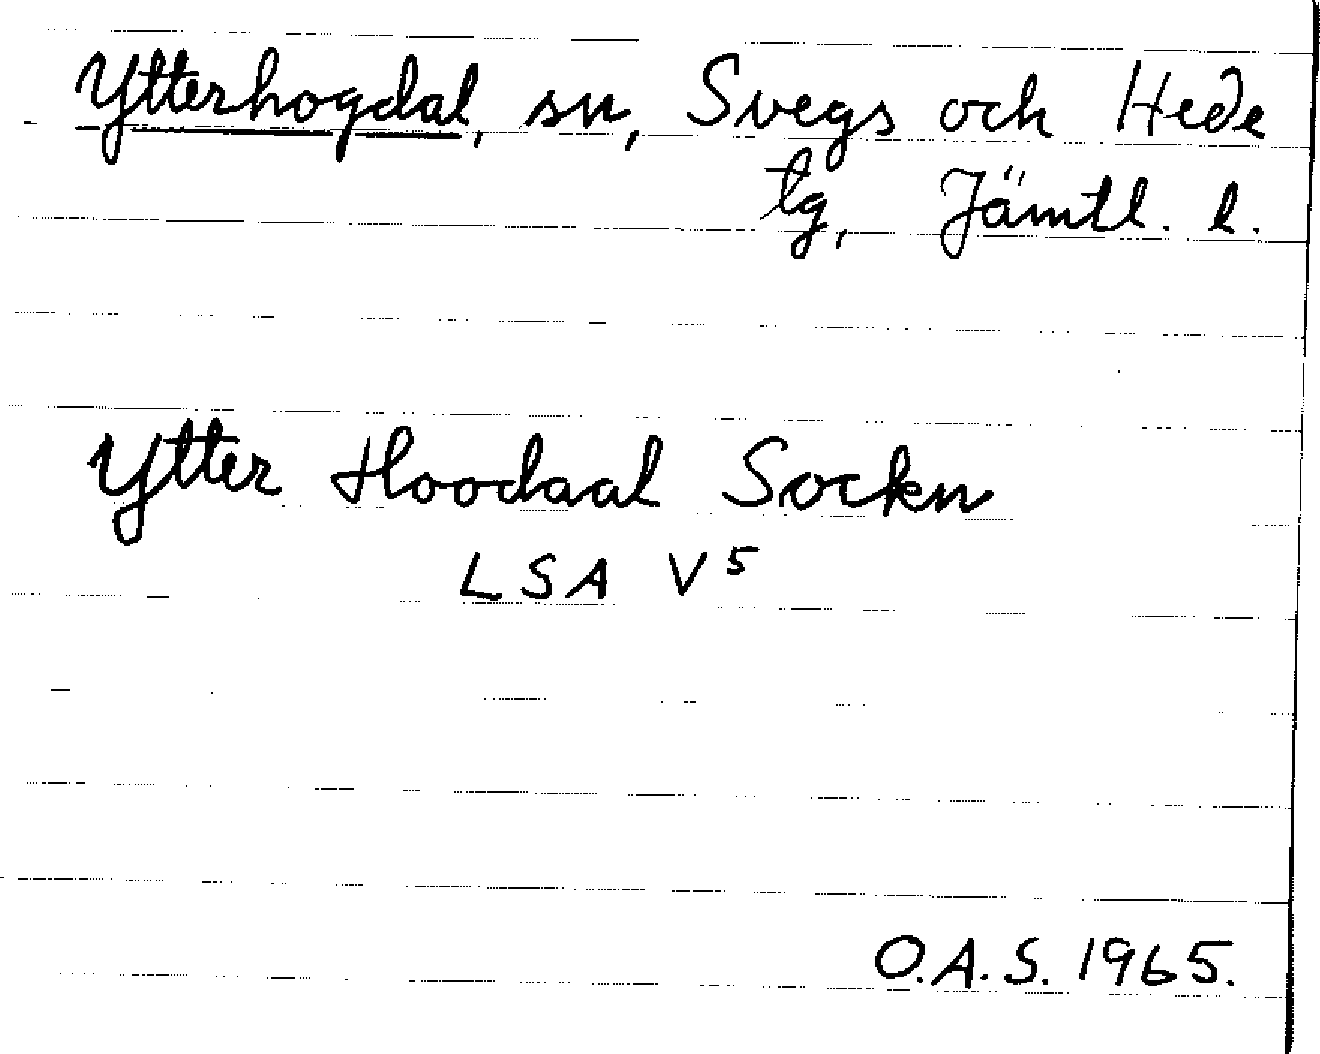 Ytterhogdal, sn, Svegs och Hede
tg, Jämtl. l.
Ytter Hoodaal Sockn
LSA V5
O.A.S. 1965.